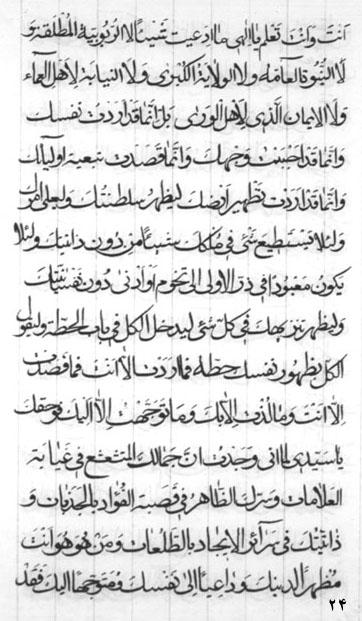 انت وانك تعلم يا الهى ما ادعيت شيئا لا الربوبية المطلقة و
لا النبوة العامة ولا الولاية الكبرى ولا النيابة لاهل العماء
ولا الايمان الذى لاهل الورى بل انما قد اردت نفسك
وانما قد احببت وجهك وانما قصدت تبعية اوليآئك
وانما قد اردت تطهير ارضك ليظهر سلطنتك ولعلى امرك
ولئلا يستطيع شئ فى ملكك شيئا من دون ذاتيك ولئلا
يكون معبودا فى ذر الاولى الى تخوم او ادنى دون نفسك
وليظهر تنزيهك فى كل شئ ليدخل الكل فى باب الحطة وليقول
الكل بظهور نفسك حطة فما اردت الا انت فما قصدت
الا انت وما لذت الا بك وما توجهت الا اليك فوحقك
يا سيدى انى وجدت ان جمالك المتشعشع فى غيابة
العلامات وسرك الظاهر فى قصبة الفؤاد بالجذبات و
ذاتيتك فى سرآئر الايجاد بالطلعات ومن هو هو انت
مظهر الدينك وداعيا الى نفسك ومتوجها اليك فقد
٢٤